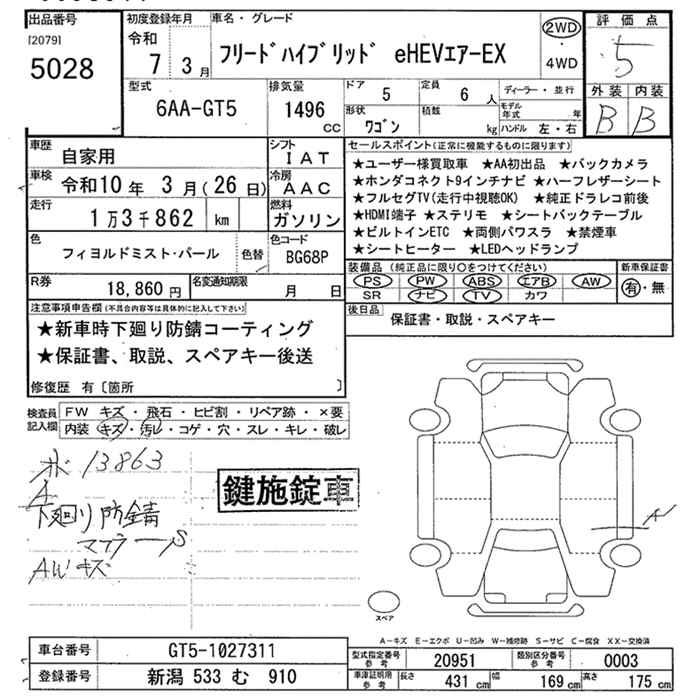 出品番号
[2079]
5028
初度登録年月
令和
7 3月
車名・グレード
フリードハイブリッド eHEVエアーEX
2WD
・
4WD
評価点
5
外装 内装
B B
型式
6AA-GT5
排気量
1496
CC
ドア
5
定員
6 人
形状
ワゴン
積数
kg
ディーラー・並行
モデル年式 年
ハンドル 左・右
車歴
自家用
シフト
IAT
車検
令和10年 3月(26日)
冷房
AAC
走行
1万3千862 km
燃料
ガソリン
色
フィヨルドミスト・パール
色替
色コード
BG68P
R券
18,860円
名変通知期限
月 日
セールスポイント(正常に機能するものに限ります)
★ユーザー様買取車 ★AA初出品 ★バックカメラ
★ホンダコネクト9インチナビ ★ハーフレザーシート
★フルセグTV(走行中視聴OK) ★純正ドラレコ前後
★HDMI端子 ★ステリモ ★シートバックテーブル
★ビルトインETC ★両側パワスラ ★禁煙車
★シートヒーター ★LEDヘッドランプ
装備品(純正品に限り○をつけてください)
PS PW ABS エアB AW
SR ナビ TV カワ
新車保証書
有・無
後日品
保証書・取説・スペアキー
注意事項申告欄(不具合内容等は具体的に記入して下さい)
★新車時下廻り防錆コーティング
★保証書、取説、スペアキー後送
修復歴 有〔箇所 〕
検査員記入欄
FW キズ・飛石・ヒビ割・リペア跡・×要
内装 キズ・汚レ・コゲ・穴・スレ・キレ・破レ
13863
A
下廻り防錆
マフラーS
AWキズ
鍵施錠車
A
スペア
A-キズ E-エクボ U-凹み W-補修跡 S-サビ C-腐食 XX-交換済
車台番号
GT5-1027311
登録番号
新潟 533 む 910
型式指定番号
参考
20951
類別区分番号
参考
0003
車庫証明用
参考
長さ
431 cm
幅
169 cm
高さ
175 cm